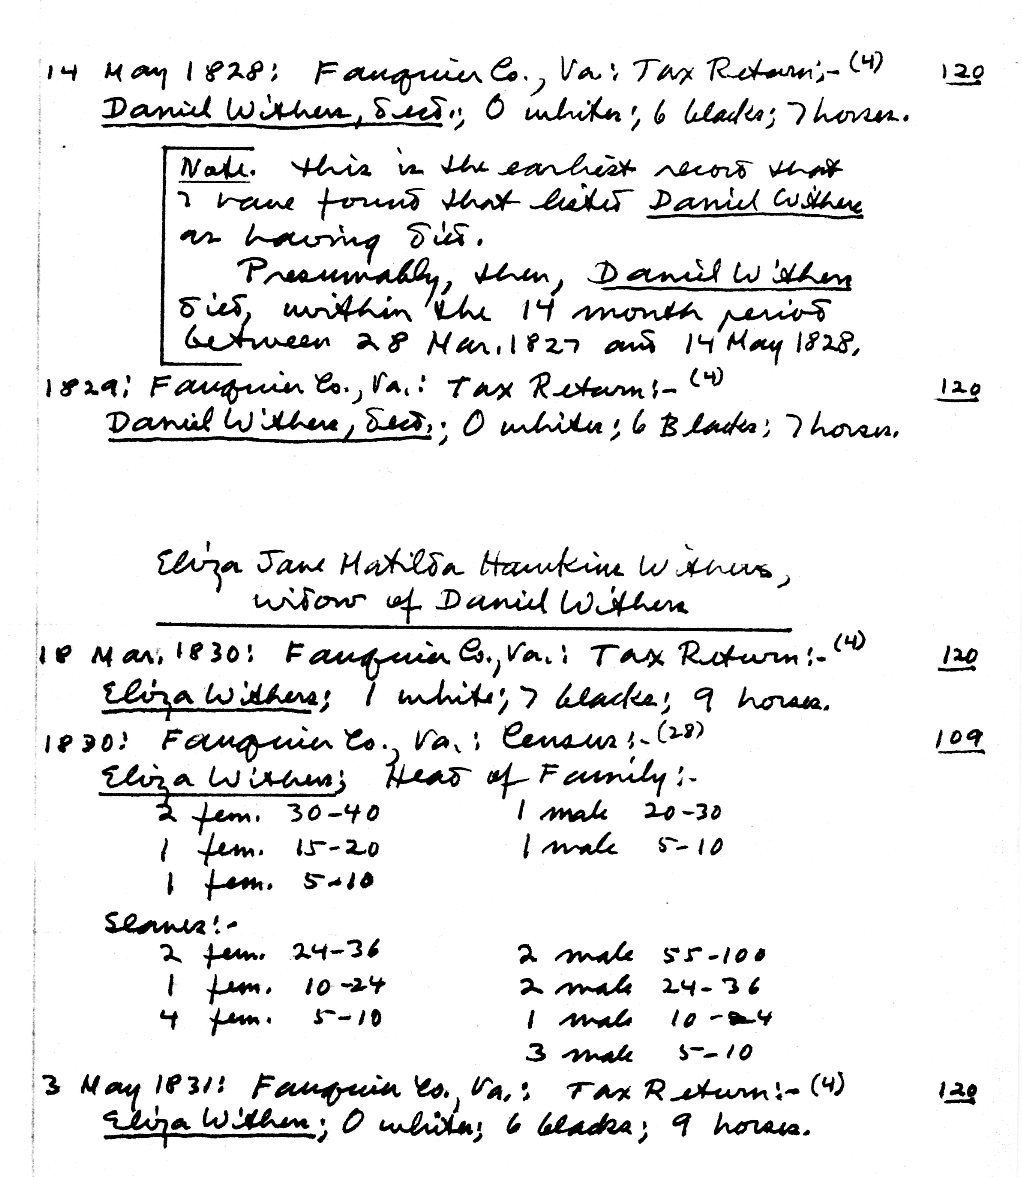 14 May 1828: Fauquier Co., Va.: Tax Return:- (4) 120
Daniel Withers, decd.; 0 whites; 6 blacks; 7 horses.
Note. This is the earliest record that
I have found that listed Daniel Withers
as having died.
Presumably, then, Daniel Withers
died, within the 14 month period
between 28 Mar. 1827 and 14 May 1828.
1829: Fauquier Co., Va.: Tax Return:- (4) 120
Daniel Withers, decd.; 0 whites; 6 Blacks; 7 horses.
Eliza Jane Matilda Hawkins Withers,
widow of Daniel Withers
18 Mar. 1830: Fauquier Co., Va.: Tax Return:- (4) 120
Eliza Withers; 1 white; 7 blacks; 9 horses.
1830: Fauquier Co., Va.: Census:- (28) 109
Eliza Withers; Head of Family:-
2 fem. 30-40 1 male 20-30
1 fem. 15-20 1 male 5-10
1 fem. 5-10
Slaves:-
2 fem. 24-36 2 male 55-100
1 fem. 10-24 2 male 24-36
4 fem. 5-10 1 male 10-24
3 male 5-10
3 May 1831: Fauquier Co., Va.: Tax Return:- (4) 120
Eliza Withers; 0 whites; 6 blacks; 9 horses.